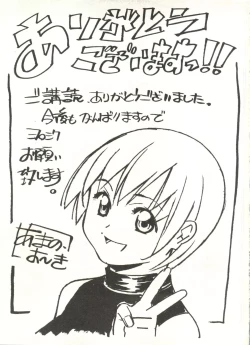 ありがとう
ございますっ!!
ご講読ありがとうございました。
今後もがんばりますので
ヨロシク
お願い
致します。
あまの・
よんき